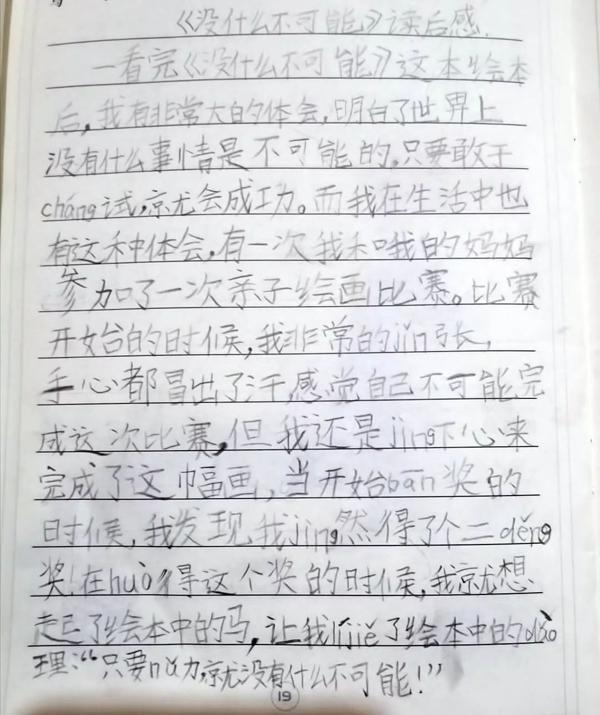 《没什么不可能》读后感.
一看完《没什么不可能》这本绘本
后,我有非常大的体会,明白了世界上
没有什么事情是不可能的,只要敢于
cháng试,就会成功。而我在生活中也
有这种体会,有一次我和我的妈妈
参加了一次亲子绘画比赛。比赛
开始的时候,我非常的jǐn张,
手心都冒出了汗,感觉自己不可能完
成这次比赛,但我还是jìng下心来
完成了这巾幅画,当开始bān奖的
时候,我发现我jìng然得了个二děng
奖!在huò得这个奖的时候,我就想
起了绘本中的马,让我lǐjiě了绘本中的dào
理:“只要nǔ力,就没有什么不可能!”
19